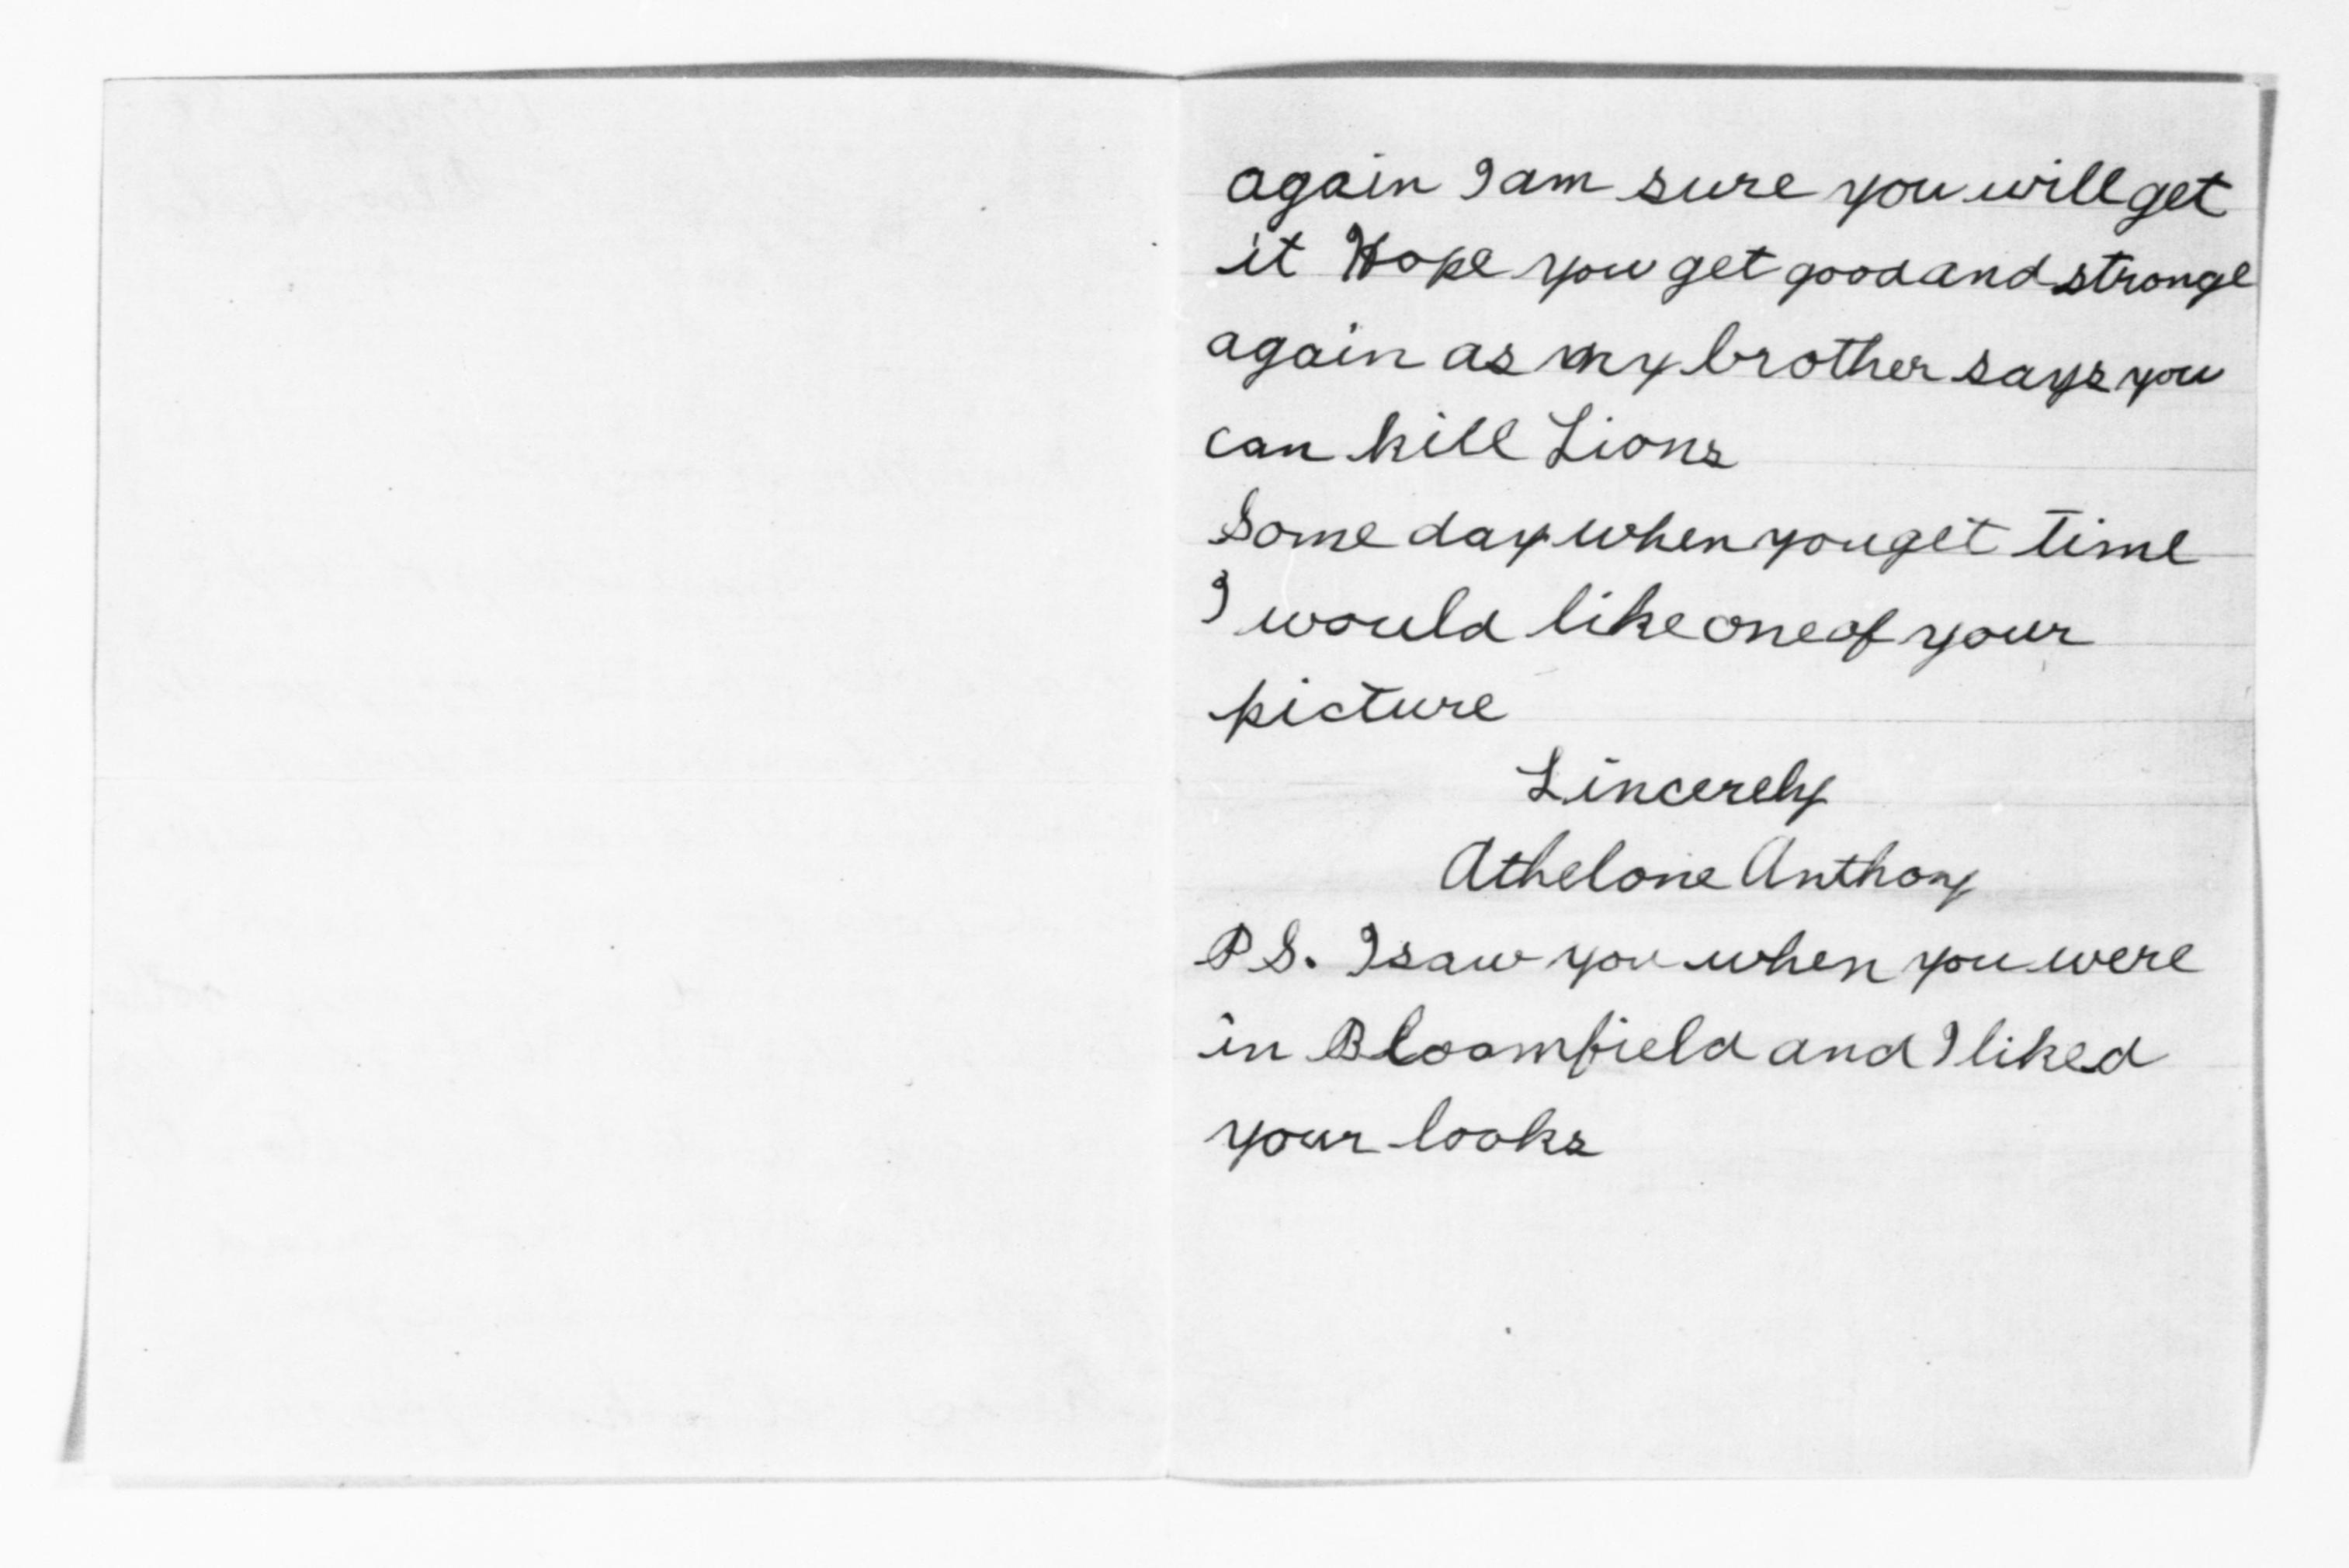 again I am sure you will get
it Hope you get good and stronge
again as my brother says you
can kill Lions
Some day when you get time
I would like one of your
picture
Sincerely
Athelone Anthony
P S. I saw you when you were
in Bloomfield and I liked
your looks